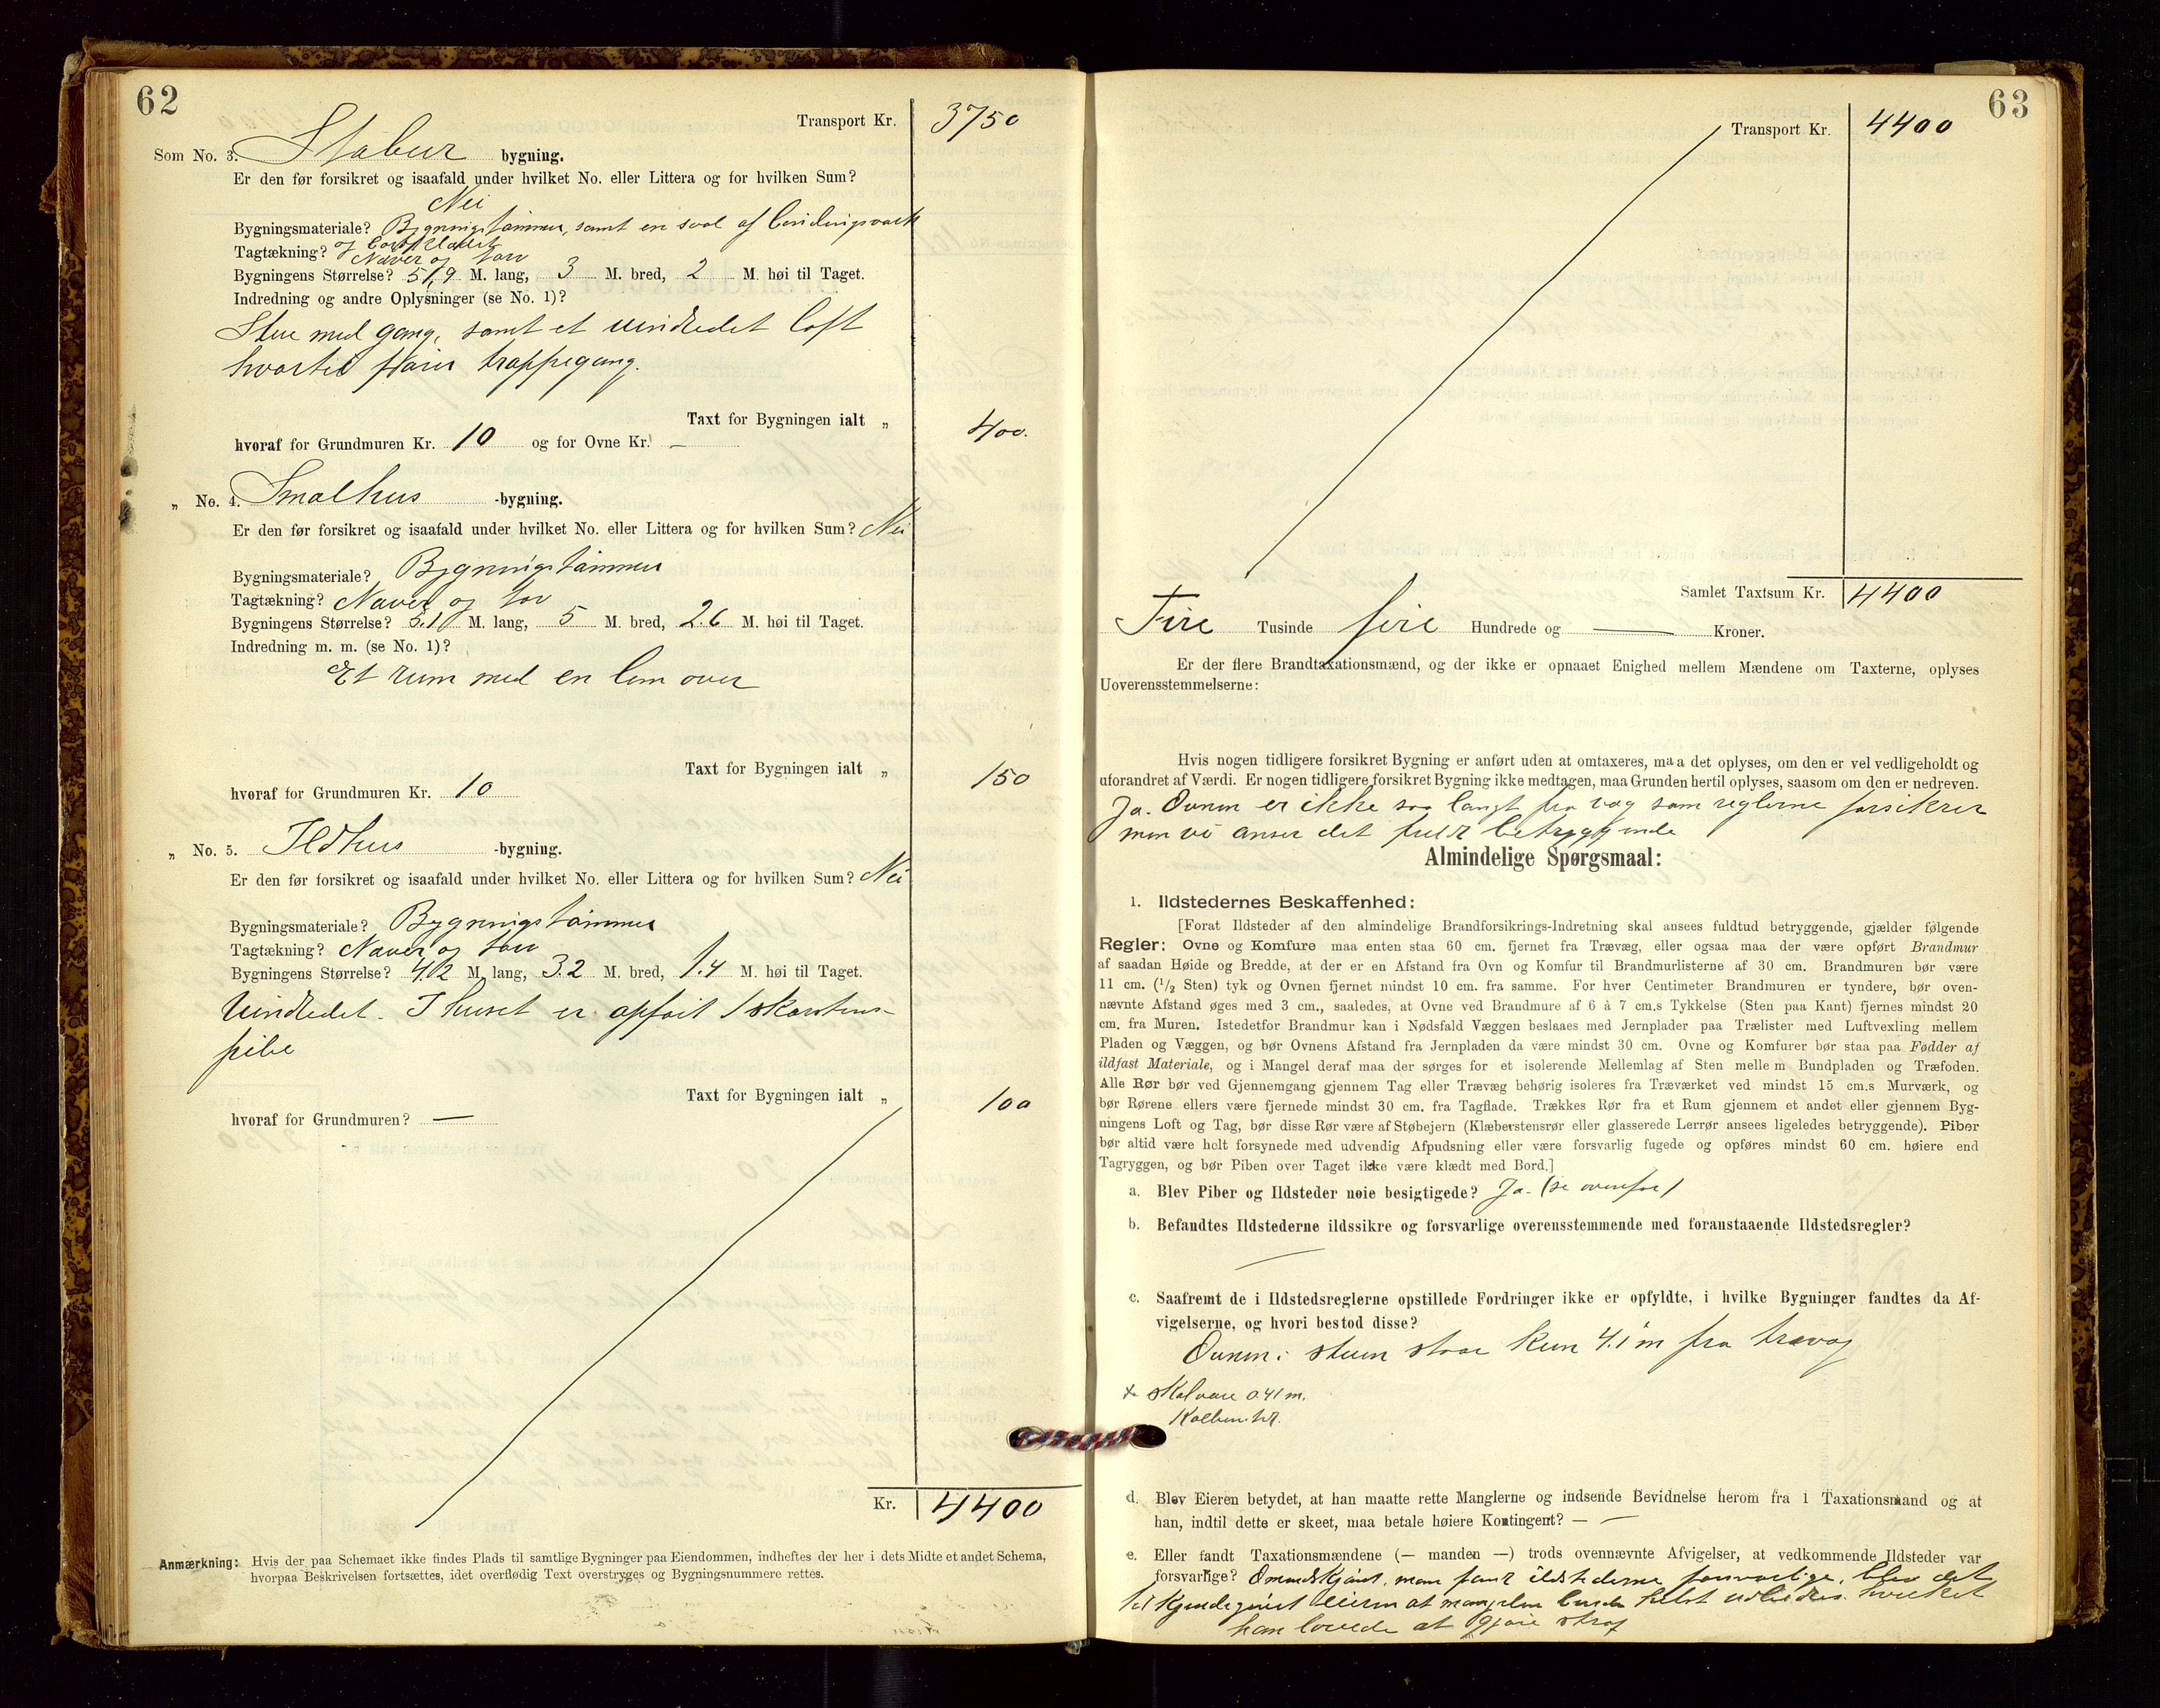 62
Transport Kr. 3750
Som No. 3. Stabur bygning.
Er den før forsikret og isaafald under hvilket No. eller Littera og for hvilken Sum?
Nei
Bygningsmateriale? Bygningstømmer, samt en sval af bindingsværk
Tagtækning? og bordklædet
Næver og torv
Bygningens Størrelse? 5,9 M. lang, 3 M. bred, 2 M. høi til Taget.
Indredning og andre Oplysninger (se No. 1)?
Stue med gang, samt et uindredet loft
hvortil fører trappegang.
Taxt for Bygningen ialt „ 400.
hvoraf for Grundmuren Kr. 10 og for Ovne Kr. —
„ No. 4. Smalhus -bygning.
Er den før forsikret og isaafald under hvilket No. eller Littera og for hvilken Sum? Nei
Bygningsmateriale? Bygningstømmer
Tagtækning? Næver og torv
Bygningens Størrelse? 5.10 M. lang, 5 M. bred, 2.6 M. høi til Taget.
Indredning m. m. (se No. 1)?
Et rum med en lem over
Taxt for Bygningen ialt „ 150
hvoraf for Grundmuren Kr. 10
„ No. 5. Ildhus -bygning.
Er den før forsikret og isaafald under hvilket No. eller Littera og for hvilken Sum? Nei
Bygningsmateriale? Bygningstømmer
Tagtækning? Næver og torv
Bygningens Størrelse? 4.2 M. lang, 3.2 M. bred, 1.4 M. høi til Taget.
Uindredet. I huset er opført 1 skorstens-
pibe
Taxt for Bygningen ialt „ 100
hvoraf for Grundmuren? —
Kr. 4400
Anmærkning: Hvis der paa Schemaet ikke findes Plads til samtlige Bygninger paa Eiendommen, indheftes der her i dets Midte et andet Schema,
hvorpaa Beskrivelsen fortsættes, idet overflødig Text overstryges og Bygningsnummere rettes.
63
Transport Kr. 4400
Samlet Taxtsum Kr. 4400
Fire Tusinde fire Hundrede og — Kroner.
Er der flere Brandtaxationsmænd, og der ikke er opnaaet Enighed mellem Mændene om Taxterne, oplyses
Uoverensstemmelserne:
Hvis nogen tidligere forsikret Bygning er anført uden at omtaxeres, maa det oplyses, om den er vel vedligeholdt og
uforandret af Værdi. Er nogen tidligere forsikret Bygning ikke medtagen, maa Grunden hertil oplyses, saasom om den er nedreven.
Ja. Ovnen er ikke saa langt fra væg som reglerne forsikrer
men vi anser det fuldt betryggende
Almindelige Spørgsmaal:
1. Ildstedernes Beskaffenhed:
[Forat Ildsteder af den almindelige Brandforsikrings-Indretning skal ansees fuldtud betryggende, gjælder følgende
Regler: Ovne og Komfure maa enten staa 60 cm. fjernet fra Trævæg, eller ogsaa maa der være opført Brandmur
af saadan Høide og Bredde, at der er en Afstand fra Ovn og Komfur til Brandmurlisterne af 30 cm. Brandmuren bør være
11 cm. (1/2 Sten) tyk og Ovnen fjernet mindst 10 cm. fra samme. For hver Centimeter Brandmuren er tyndere, bør oven-
nævnte Afstand øges med 3 cm., saaledes, at Ovne ved Brandmure af 6 à 7 cm.s Tykkelse (Sten paa Kant) fjernes mindst 20
cm. fra Muren. Istedetfor Brandmur kan i Nødsfald Væggen beslaaes med Jernplader paa Trælister med Luftvexling mellem
Pladen og Væggen, og bør Ovnens Afstand fra Jernpladen da være mindst 30 cm. Ovne og Komfurer bør staa paa Fødder af
ildfast Materiale, og i Mangel deraf maa der sørges for et isolerende Mellemlag af Sten mellem Bundpladen og Træfoden.
Alle Rør bør ved Gjennemgang gjennem Tag eller Trævæg behørig isoleres fra Træværket ved mindst 15 cm.s Murværk, og
bør Rørene ellers være fjernede mindst 30 cm. fra Tagflade. Trækkes Rør fra et Rum gjennem et andet eller gjennem Byg-
ningens Loft og Tag, bør disse Rør være af Støbejern (Klæberstensrør eller glasserede Lerrør ansees ligeledes betryggende). Piber
bør altid være helt forsynede med udvendig Afpudsning eller være forsvarlig fugede og opføres mindst 60 cm. høiere end
Tagryggen, og bør Piben over Taget ikke være klædt med Bord.]
a. Blev Piber og Ildsteder nøie besigtigede? Ja. (se ovenfor)
b. Befandtes Ildstederne ildssikre og forsvarlige overensstemmende med foranstaaende Ildstedsregler?
—
c. Saafremt de i Ildstedsreglerne opstillede Fordringer ikke er opfyldte, i hvilke Bygninger fandtes da Af-
vigelserne, og hvori bestod disse?
Ovnen i stuen staar kun 4.1 m fra trævæg
x Skal være 0.41 m.
d. Blev Eieren betydet, at han maatte rette Manglerne og indsende Bevidnelse herom fra 1 Taxationsmand og at
han, indtil dette er skeet, maa betale høiere Kontingent? — —
e. Eller fandt Taxationsmændene (— manden —) trods ovennævnte Afvigelser, at vedkommende Ildsteder var
forsvarlige? Omendskjønt, man fandt ildstederne forsvarlige, blev det
tilkjendegivet eieren at manglen burde helst udbedres. hvilket
han lovede at gjøre straf